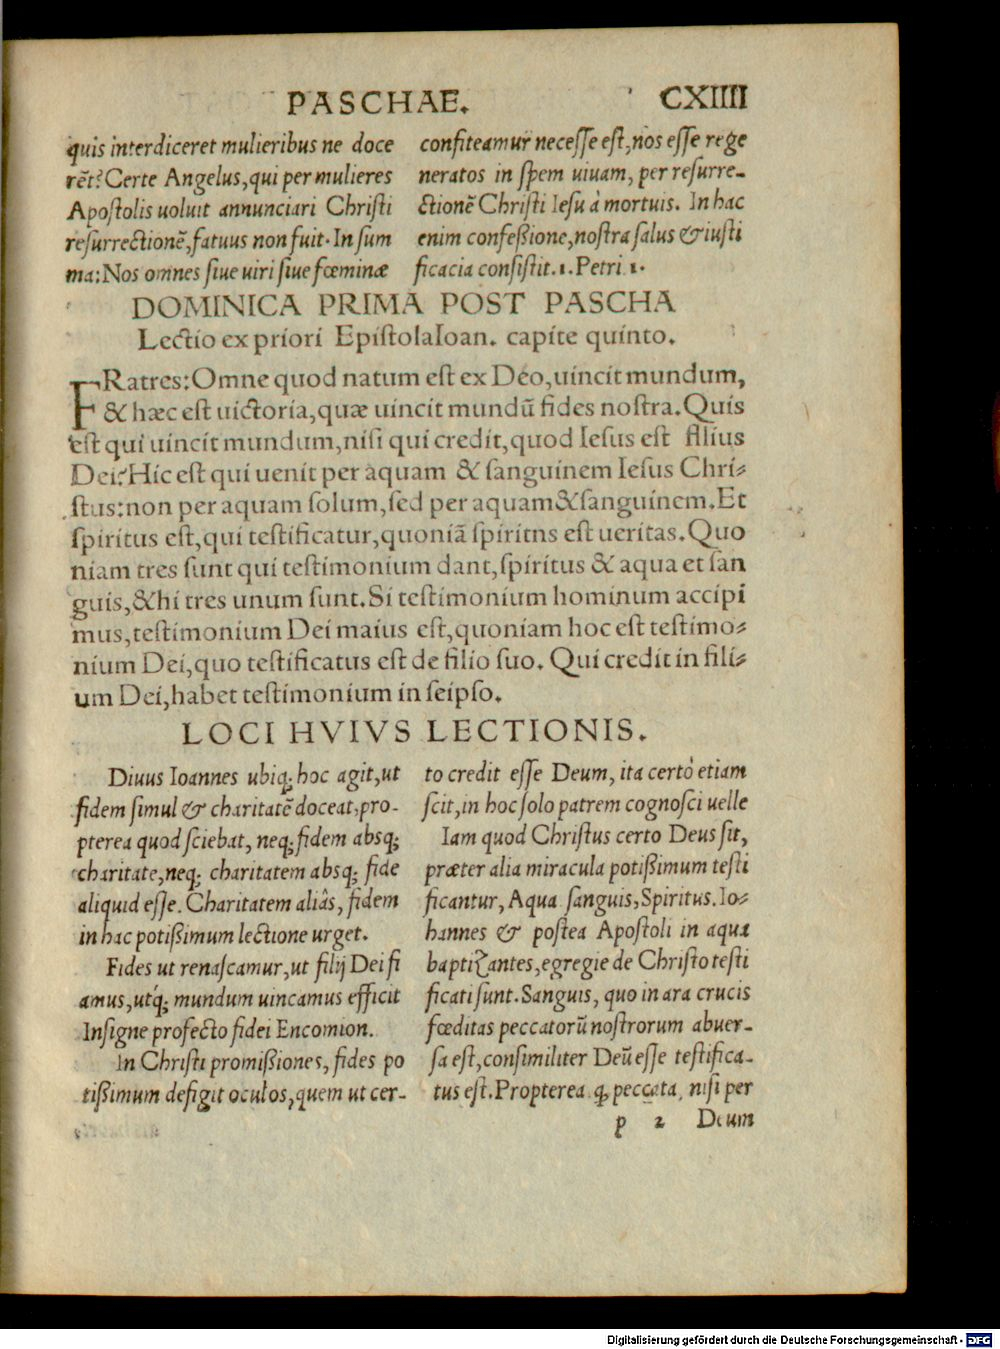 PASCHAE. CXIIII
quis interdiceret mulieribus ne doce
rēt? Certe Angelus, qui per mulieres
Apostolis uoluit annunciari Christi
resurrectionē, fatuus non fuit. In sum
ma: Nos omnes siue uiri siue fœminæ
confiteamur necesse est, nos esse rege
neratos in spem uiuam, per resurre-
ctionē Christi Iesu à mortuis. In hac
enim confessione, nostra salus & iusti
ficacia consistit. 1. Petri 1.
DOMINICA PRIMA POST PASCHA
Lectio ex priori Epistola Ioan. capite quinto.
FRatres: Omne quod natum est ex Deo, uincit mundum,
& hæc est uictoria, quæ uincit mundū fides nostra. Quis
est qui uincit mundum, nisi qui credit, quod Iesus est filius
Dei? Hic est qui uenit per aquam & sanguinem Iesus Chri-
stus: non per aquam solum, sed per aquam & sanguinem. Et
spiritus est, qui testificatur, quoniā spiritns est ueritas. Quo
niam tres sunt qui testimonium dant, spiritus & aqua et san
guis, & hi tres unum sunt. Si testimonium hominum accipi
mus, testimonium Dei maius est, quoniam hoc est testimo-
nium Dei, quo testificatus est de filio suo. Qui credit in fili-
um Dei, habet testimonium in seipso.
LOCI HVIVS LECTIONIS.
Diuus Ioannes ubiq; hoc agit, ut
fidem simul & charitatē doceat, pro-
pterea quod sciebat, neq; fidem absq;
charitate, neq; charitatem absq; fide
aliquid esse. Charitatem aliâs, fidem
in hac potissimum lectione urget.
Fides ut renascamur, ut filij Dei fi
amus, utq́; mundum uincamus efficit
Insigne profecto fidei Encomion.
In Christi promissiones, fides po
tissimum defigit oculos, quem ut cer-
to credit esse Deum, ita certò etiam
scit, in hoc solo patrem cognosci uelle
Iam quod Christus certo Deus sit,
præter alia miracula potissimum testi
ficantur, Aqua sanguis, Spiritus. Io-
hannes & postea Apostoli in aqua
baptizantes, egregie de Christo testi
ficati sunt. Sanguis, quo in ara crucis
fœditas peccatorū nostrorum abuer-
sa est, consimiliter Deū esse testifica-
tus est. Propterea q; peccata, nisi per
p 2 Deum
Digitalisierung gefördert durch die Deutsche Forschungsgemeinschaft - DFG